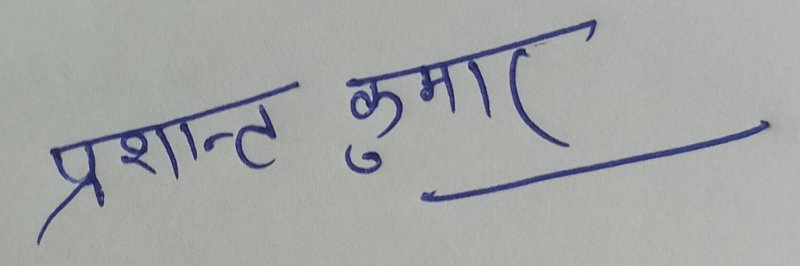 प्रशान्त कुमार